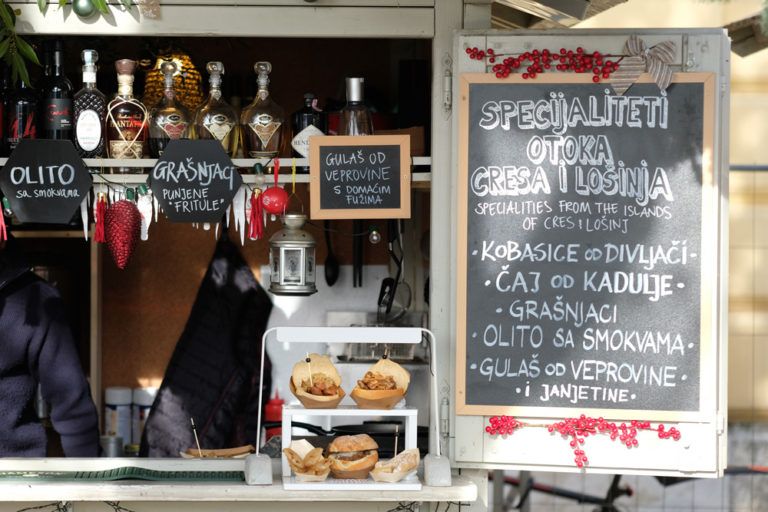 OLITO
sa SMOKVAMA
GRAŠNJACI
PUNJENE
"FRITULE"
GULAŠ OD
VEPROVINE
S DOMAĆIM
FUŽIMA
SPECIJALITETI
OTOKA
CRESA I LOŠINJA
SPECIALITIES FROM THE ISLANDS
OF CRES I LOŠINJ
· KOBASICE OD DIVLJAČI ·
· ČAJ OD KADULJE ·
· GRAŠNJACI
· OLITO SA SMOKVAMA ·
· GULAŠ OD VEPROVINE ·
· I JANJETINE ·